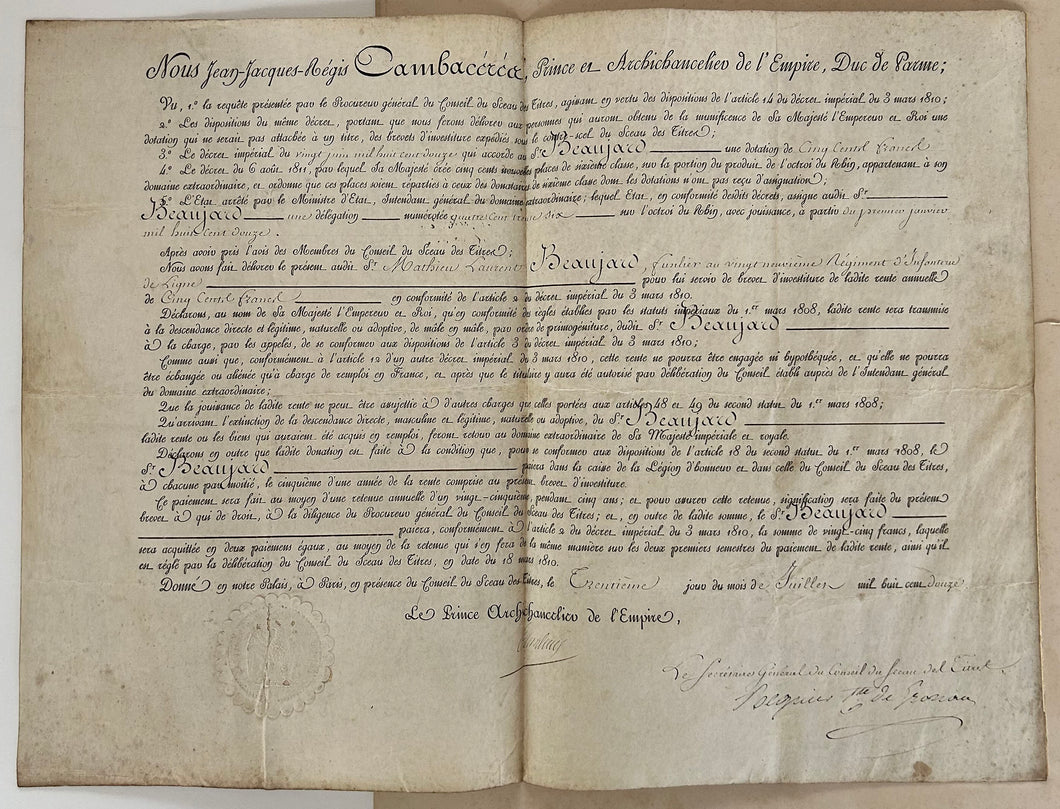 Nous Jean-Jacques-Régis Cambacérés, Prince et Archichancelier de l'Empire, Duc de Parme;
Vu, 1.° la requête présentée par le Procureur général du Conseil du Sceau des Titres, agissant en vertu des dispositions de l'article 14 du décret impérial du 3 mars 1810;
2.° Les dispositions du même décret, portant que nous ferons délivrer aux personnes qui auront obtenu de la munificence de Sa Majesté l'Empereur et Roi une
dotation qui ne serait pas attachée à un titre, des brevets d'investiture expédiés sous le contre-scel du Sceau des Titres;
3.° Le décret impérial du vingt juin mil huit cent douze qui accorde au S.r Beaujard une dotation de Cinq Cents francs
4.° Le décret du 6 août 1811, par lequel Sa Majesté crée cinq cents nouvelles places de sixième classe, sur la portion du produit de l'octroi du Rhin, appartenant à son
domaine extraordinaire, et ordonne que ces places soient réparties à ceux des donataires de sixième classe dont les dotations n'ont pas reçu d'assignation;
5.° L'Etat arrêté par le Ministre d'Etat, Intendant général du domaine extraordinaire; lequel Etat, en conformité desdits décrets, assigne audit S.r
Beaujard une délégation numérotée quatre cent trente six sur l'octroi du Rhin, avec jouissance, à partir du premier janvier
mil huit cent douze.
Après avoir pris l'avis des Membres du Conseil du Sceau des Titres;
Nous avons fait délivrer le présent audit S.r Mathieu Laurent Beaujard, fusilier au vingt neuvième Régiment d'Infanterie
de Ligne pour lui servir de brevet d'investiture de ladite rente annuelle
de Cinq Cents francs en conformité de l'article 2 du décret impérial du 3 mars 1810.
Déclarons, au nom de Sa Majesté l'Empereur et Roi, qu'en conformité des règles établies par les statuts impériaux du 1.er mars 1808, ladite rente sera transmise
à la descendance directe et légitime, naturelle ou adoptive, de mâle en mâle, par ordre de primogéniture, dudit S.r Beaujard
à la charge, par les appelés, de se conformer aux dispositions de l'article 3 du décret impérial du 3 mars 1810;
Comme aussi que, conformément à l'article 2 d'un autre décret impérial du 3 mars 1810, cette rente ne pourra être engagée ni hypothéquée, et qu'elle ne pourra
être échangée ou aliénée qu'à charge de remploi en France, et après que le titulaire y aura été autorisé par délibération du Conseil établi auprès de l'Intendant général
du domaine extraordinaire;
Que la jouissance de ladite rente ne peut être assujettie à d'autres charges que celles portées aux articles 48 et 49 du second statut du 1.er mars 1808;
Qu'arrivant l'extinction de la descendance directe, masculine et légitime, naturelle ou adoptive, du S.r Beaujard
ladite rente ou les biens qui auraient été acquis en remploi, feront retour au domaine extraordinaire de Sa Majesté impériale et royale.
Déclarons en outre que ladite donation est faite à la condition que, pour se conformer aux dispositions de l'article 18 du second statut du 1.er mars 1808, le
S.r Beaujard paiera dans la caisse de la Légion d'honneur et dans celle du Conseil du Sceau des Titres,
à chacune par moitié, le cinquième d'une année de la rente comprise au présent brevet d'investiture.
Ce paiement sera fait au moyen d'une retenue annuelle d'un vingt-cinquième, pendant cinq ans; et pour assurer cette retenue, signification sera faite du présent
brevet à qui de droit, à la diligence du Procureur général du Conseil du Sceau des Titres; et, en outre de ladite somme, le S.r Beaujard
paiera, conformément à l'article 2 du décret impérial du 3 mars 1810, la somme de vingt-cinq francs, laquelle
sera acquittée en deux paiemens égaux, au moyen de la retenue qui s'en fera de la même manière sur les deux premiers semestres du paiement de ladite rente, ainsi qu'il
est réglé par la délibération du Conseil du Sceau des Titres, en date du 18 mars 1810.
Donné en notre Palais, à Paris, en présence du Conseil du Sceau des Titres, le Trentième jour du mois de Juillet mil huit cent douze.
Le Prince Archichancelier de l'Empire,
Le Secrétaire Général du Conseil du Sceau des Titres.